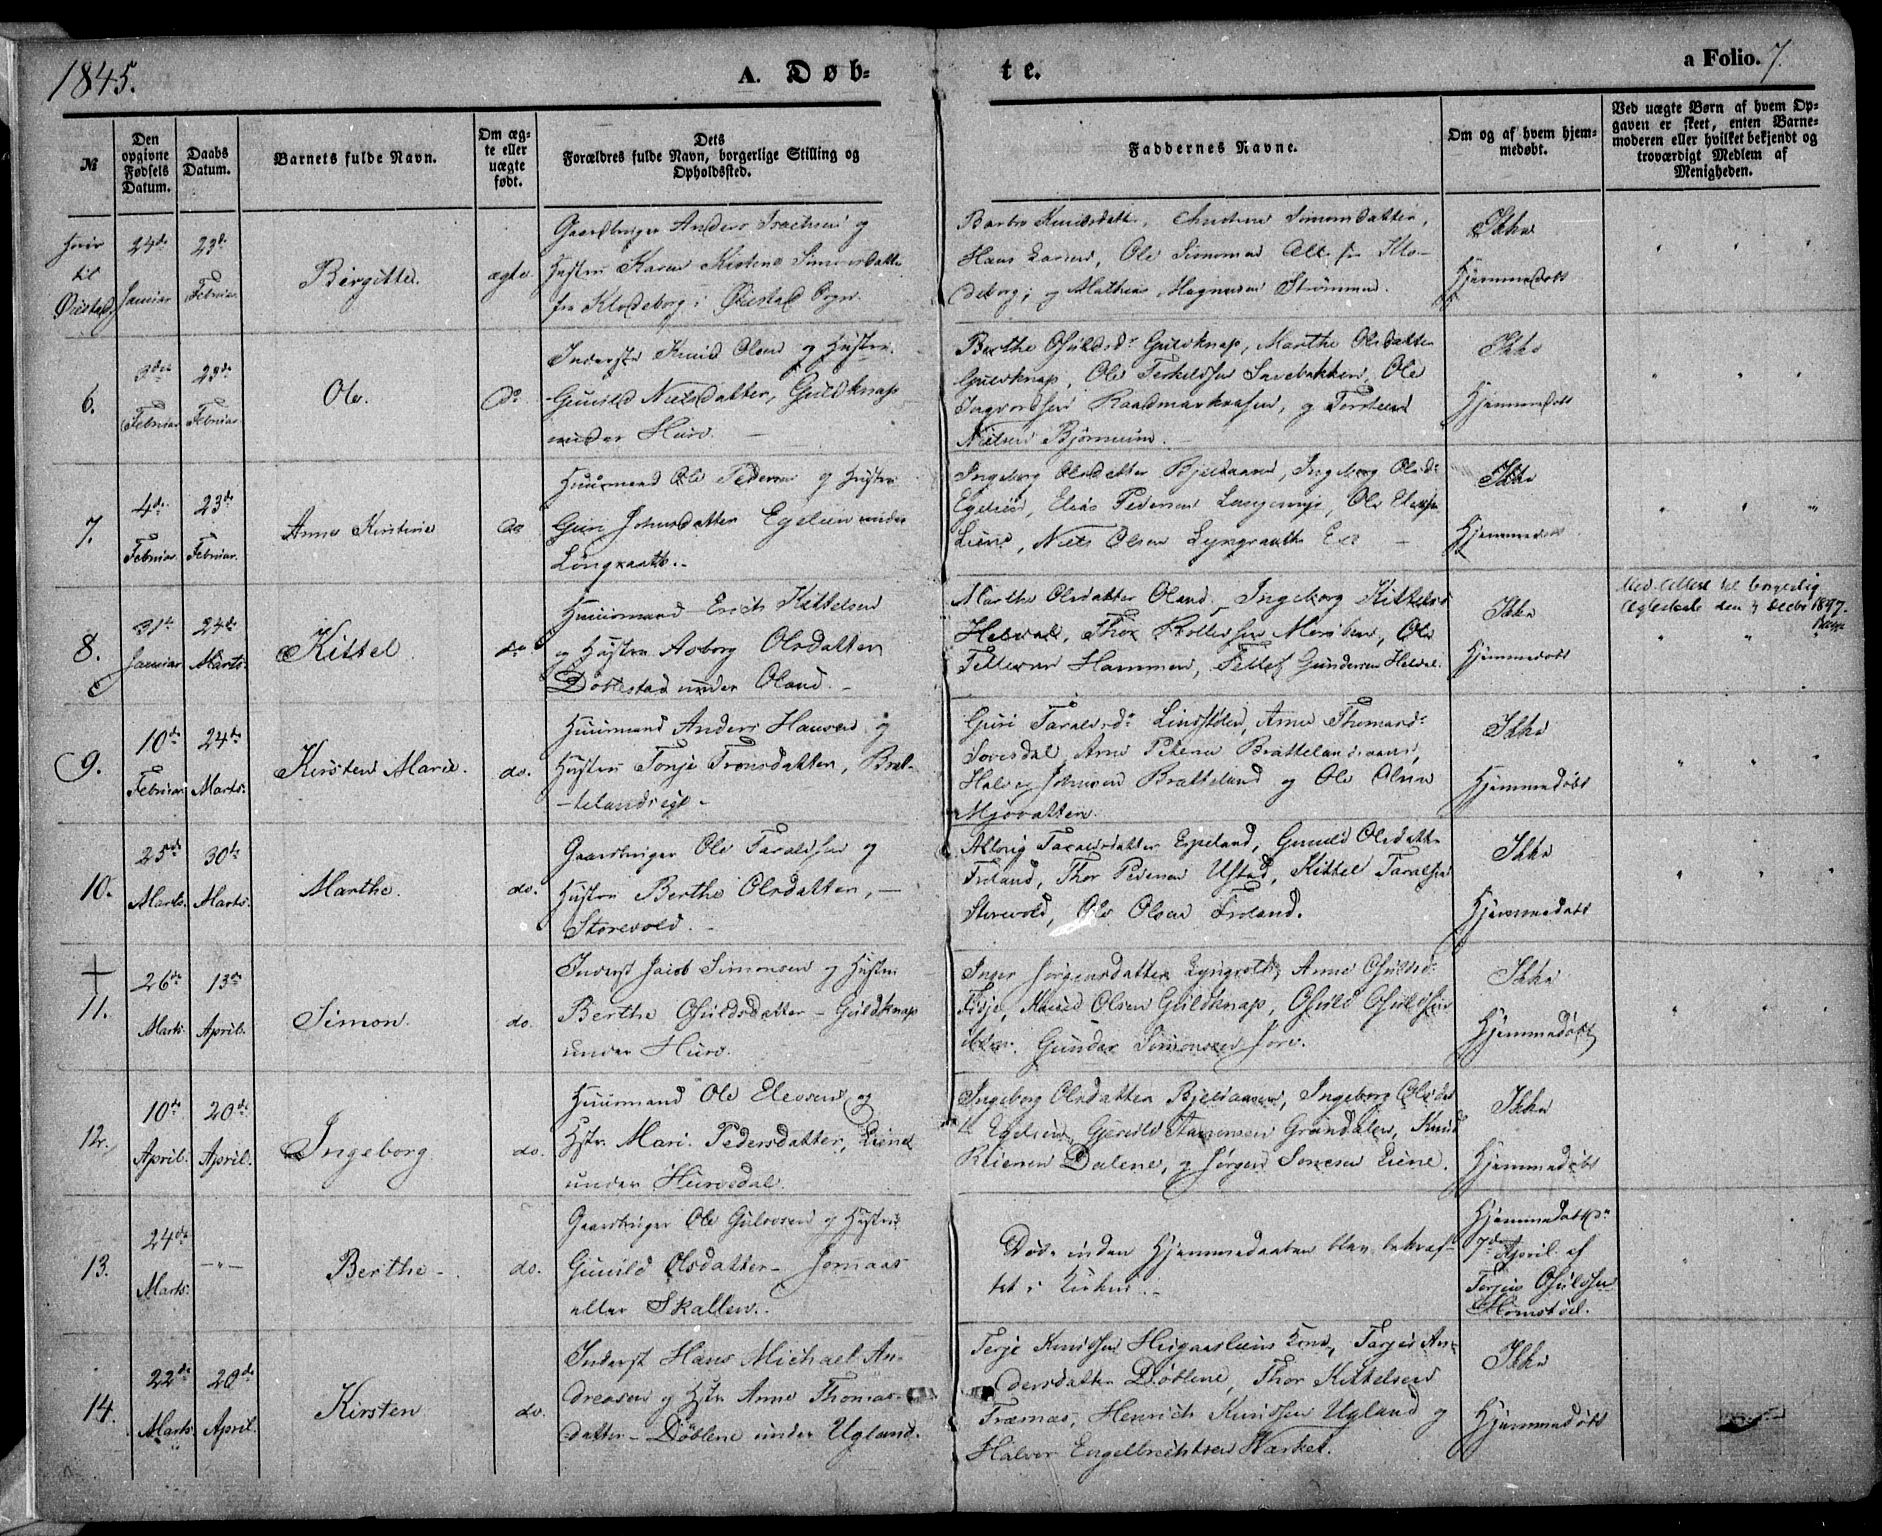 1845.
A. Døb-
te.
a Folio. 7.
№
Den opgivne Fødsels Datum.
Daabs Datum.
Barnets fulde Navn.
Om ægte eller uægte født.
Dets
Forældres fulde Navn, borgerlige Stilling og
Opholdssted.
Faddernes Navne.
Om og af hvem hjemmedøbt.
Ved uægte Børn af hvem Opgaven er skeet, enten Barnemoderen eller hvilket bekjendt og troværdigt Medlem af Menigheden.
til
Øiestad
24de
Januar
23de
Februar
Birgitte
ægte
Gaardbruger Anders Isachsen og
Hustru Karen Kistene Simonsdatter
fra Klodeborg i Øiestad Sogn.
Barbro Knudsdatter, Simonsdatter,
Hans Larsen, Ole Simonsen Alle fra Klo-
deborg; og Mathias Magnusen Strømmen.
Ikke
Hjemmedøbt
6.
3die
Februar
23de
Februar
Ole.
do
Inderst Knud Olsen og Hustru
Gunild Nielsdatter, Guldknap
under Hurv.
Berthe Osuldsdr Guldknap, Marthe Olsdatter
Guldknap, Ole Terkildsen Savebakken, Ole
Ingvordsen og Torsten
Nielsen Bjørnum.
Ikke
Hjemmedøbt
7.
4de
Februar.
23de
Februar.
Anne Kirstine
do
Huusmand Ole Pedersen og Hustru
Guri Johnsdatter Egelien under
Longraatt.
Ingeborg Olsdatter Bjeldaasen, Ingeborg Olsdr
Egelien, Elias Pedersen Ole Elevsen
Liene, Niels Olsen
Ikke
Hjemmedøbt
8.
31te
Januar
24de
Marts.
Kittel
do
Huusmand Erich Kittelsen
og Hustru Asborg Olsdatter
Døblestad under Oland.
Marthe Olsdatter Oland, Ingeborg Kittelsd
Heldal, Thor Ole
Tellefsen Hammen, Tellef Gundersen Heldal.
Ikke
Hjemmedøbt
Med Attest til
den 4 Decbr 1847.
9.
10de
Februar
24de
Marts.
Kirsten Marie.
do.
Huusmand Anders Hansen og
Hustru Tonje Tronsdatter, Brat-
telandseie
Guri Taraldsdr Lindstølen, Anne Thomasdr
Sovesdal, Arne Petersen Brattelandsaasen,
Halvor Johnsen Bratteland og Ole Olsen
Mjovatten.
Ikke
Hjemmedøbt
10.
25de
Marts.
30te
Marts.
Marthe.
do.
Gaardbruger Ole Taraldsen og
Hustru Berthe Olsdatter,
Storevold.
Alborg Taraldsdatter Espeland, Gunild Olsdatter
Froland, Thor Pedersen Ufstad, Kittel Taraldsen
Storevold, Ole Olsen Froland.
Ikke
Hjemmedøbt
11.
26de
Marts.
13de
April.
Simon.
do.
Inderst Jacob Simonsen og Hustru
Berthe Osuldsdatter - Guldknap
under Hurv.
Inger Jørgensdatter Lyngroth, Anne Osuldsdr
Olsen Guldknap, Osuld Osuldsen
Gunder Simonsen
Ikke
Hjemmedøbt
12.
10de
April.
20de
April.
Ingeborg
do.
Huusmand Ole Elevsen og
Hstr. Mari Pedersdatter, Liene
under Hurvedal.
Ingeborg Olsdatter Bjeldaasen, Ingeborg Olsdat-
ter Egelien, Grundalen, Knud
Dalene, og Jørgen Liene.
Ikke
Hjemmedøbt
13.
24de
Marts.
- " -
Berthe
do.
Gaardbruger Ole Gulovsen og Hustru
Gunild Olsdatter - Jomaas
eller Skallen.
Døde inden Hjemmedaaben blev bekræf-
tet i Kirken.
Hjemmedøbt dn
7de April af
Terjus Osuldsen
Momstøel.
14.
22de
Marts
20de
April.
Kirsten
do.
Inderst Hans Michael An-
dreasen og Hstr Anne Thomas-
datter - Døblene under Ugland.
Terje Knudsen Heigaasliens Kone, Tarjer An-
dersdatter Døblene, Thor Kittelsen
Træmas, Henrich Knudsen Ugland og
Halvor Engelbrechtsen Harket.
Ikke
Hjemmedøbt